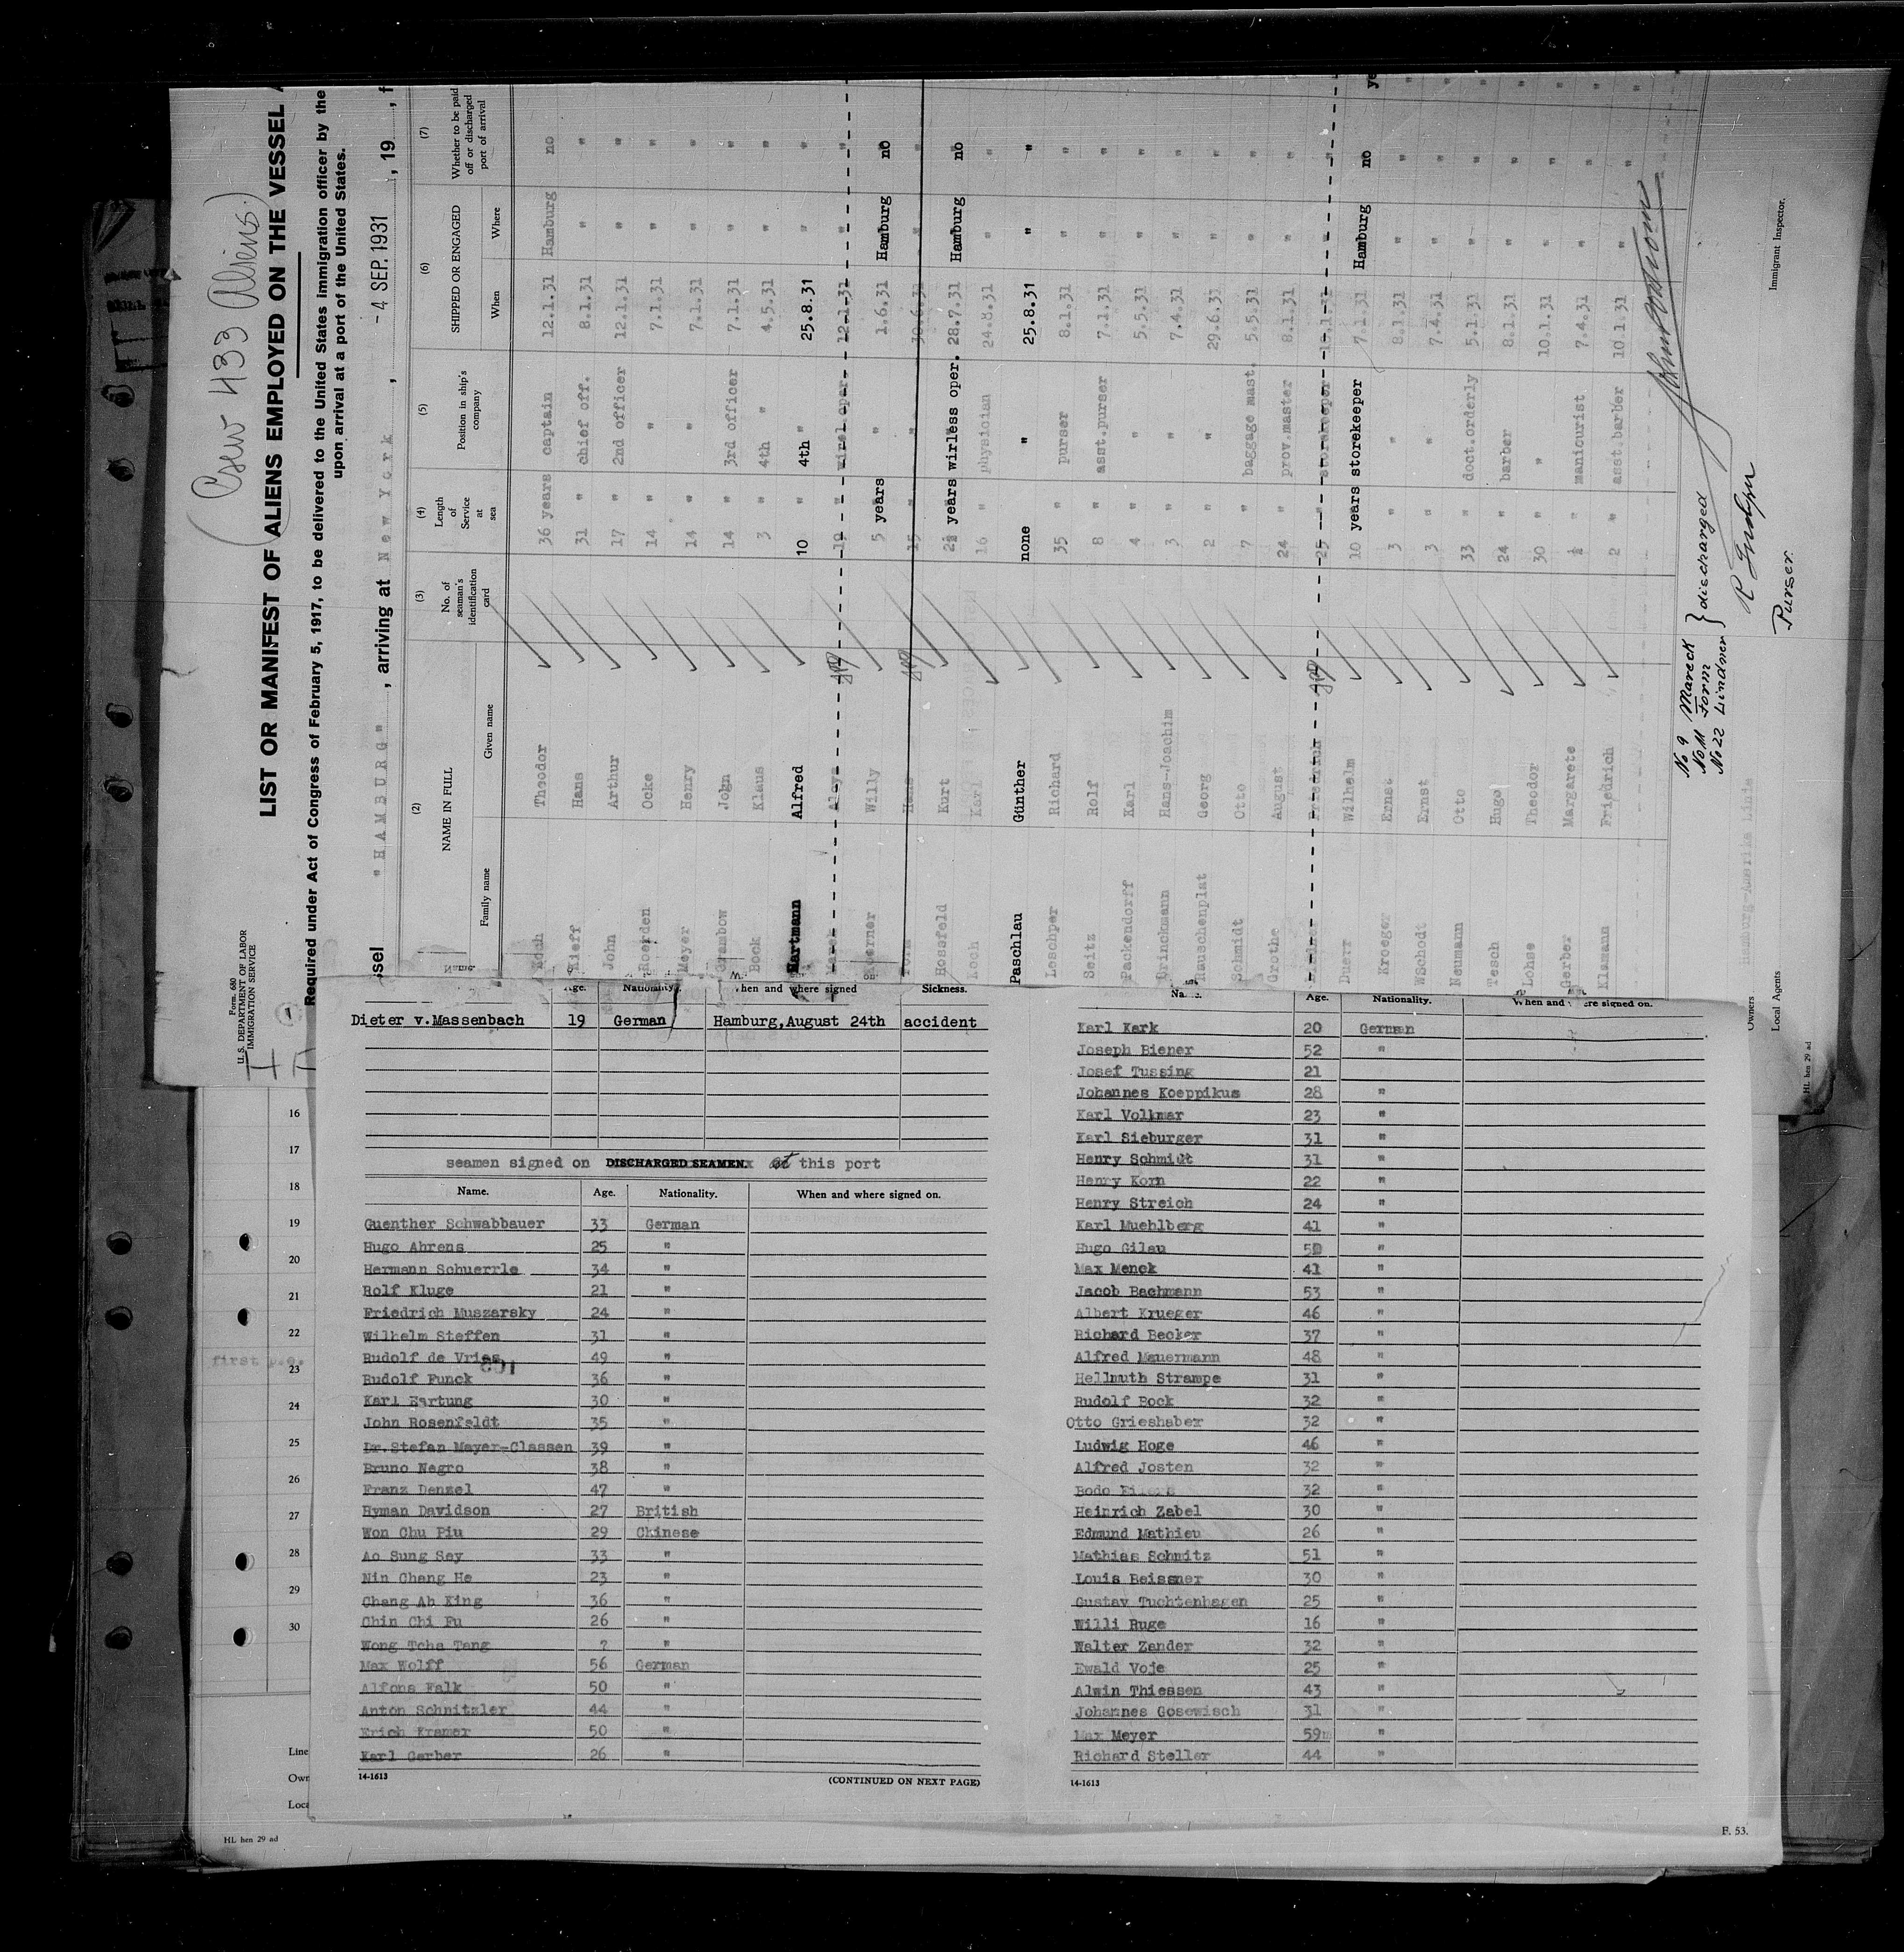 (Crew 433 Aliens.)
Form 680
U. S. DEPARTMENT OF LABOR
IMMIGRATION SERVICE
LIST OR MANIFEST OF ALIENS EMPLOYED ON THE VESSEL
Required under Act of Congress of February 5, 1917, to be delivered to the United States immigration officer by the
upon arrival at a port of the United States.
ssel "HAMBURG", arriving at New York, -4 SEP. 1931, 19
(2) (3) (4) (5) (6) (7)
NAME IN FULL No. of seaman's identification card Length of Service at sea Position in ship's company SHIPPED OR ENGAGED Whether to be paid off or discharged port of arrival
Family name Given name When Where
Koch Theodor 36 years captain 12.1.31 Hamburg no
Kieff Hans 31 " chief off. 8.1.31 " "
John Arthur 17 " 2nd officer 12.1.31 " "
Roerden Ocke 14 " " 7.1.31 " "
Meyer Henry 14 " " 7.1.31 " "
Grambow John 14 " 3rd officer 7.1.31 " "
Bock Klaus 3 " 4th " 4.5.31 " "
Hartmann Alfred 10 " 4th " 25.8.31 " "
10 " wirel.oper. 12.1.31 " "
Koerner Willy 5 years " 1.6.31 Hamburg no
Form Hans 15 " " 30.6.31 " "
Hossfeld Kurt 2½ years wirless oper. 28.7.31 Hamburg no
Koch Karl 16 " physician 24.8.31 " "
Paschlau Günther none " 25.8.31 " "
Leschper Richard 35 " purser 8.1.31 " "
Seitz Rolf 8 " asst.purser 7.1.31 " "
Packendorff Karl 4 " " 5.5.31 " "
Brinckmann Hans-Joachim 3 " " 7.4.31 " "
Rauschenplat Georg 2 " " 29.6.31 " "
Schmidt Otto 7 " baggage mast. 5.5.31 " "
Grothe August 24 " prov.master 8.1.31 " "
25 " storekeeper " "
Duerr Wilhelm 10 years storekeeper 7.1.31 Hamburg no
Kroeger Ernst 3 " " 8.1.31 " "
WSchodt Ernst 3 " " 7.4.31 " "
Neumann Otto 33 " doct.orderly 5.1.31 " "
Tesch Hugo 24 " barber 8.1.31 " "
Lohse Theodor 30 " " 10.1.31 " "
Gerber Margarete ½ " manicurist 7.4.31 " "
Klamann Friedrich 2 " asst.barber 10.1.31 " "
No 9 Mareck
No 11 Form
No 22 Lindner } discharged
Purser.
Immigrant Inspector.
Owners Hamburg-Amerika Linie
Local Agents
HL hen 29 ad
Age. Nationality. When and where signed Sickness.
Dieter v.Massenbach 19 German Hamburg,August 24th accident
seamen signed on DISCHARGED SEAMEN.x at this port
Name. Age. Nationality. When and where signed on.
Guenther Schwabbauer 33 German
Hugo Ahrens 25 "
Hermann Schuerrle 34 "
Rolf Kluge 21 "
Friedrich Muszarsky 24 "
Wilhelm Steffen 31 "
Rudolf de Vries 49 "
Rudolf Funck 36 "
Karl Hartung 30 "
John Rosenfeldt 35 "
Dr.Stefan Mayer-Classen 39 "
Bruno Negro 38 "
Franz Denzel 47 "
Hyman Davidson 27 British
Won Chu Piu 29 Chinese
Ao Sung Sey 33 "
Nin Chang He 23 "
Chang Ah King 36 "
Chin Chi Fu 26 "
Wong Tcha Tang ? "
Max Wolff 56 German
Alfons Falk 50 "
Anton Schnitzler 44 "
Erich Kramer 50 "
Karl Gerber 26 "
14-1613 (CONTINUED ON NEXT PAGE)
Age. Nationality. When and where signed on.
Karl Kark 20 German
Joseph Biener 52 "
Josef Tussing 21
Johannes Koeppikus 28 "
Karl Volkmar 23 "
Karl Sieburger 31 "
Henry Schmidt 31 "
Henry Korn 22 "
Henry Streich 24 "
Karl Muehlberg 41 "
Hugo Gilau 50 "
Max Menck 41 "
Jacob Bachmann 53 "
Albert Krueger 46 "
Richard Becker 37 "
Alfred Mauermann 48 "
Hellmuth Strampe 31 "
Rudolf Bock 32 "
Otto Grieshaber 32 "
Ludwig Hoge 46 "
Alfred Josten 32 "
Bodo Eilers 32 "
Heinrich Zabel 30 "
Edmund Mathieu 26 "
Mathias Schmitz 51 "
Louis Beissner 30 "
Gustav Tuchtenhagen 25 "
Willi Ruge 16 "
Walter Zander 32 "
Ewald Voje 25 "
Alwin Thiessen 43 "
Johannes Gosewisch 31 "
Max Meyer 59 "
Richard Steller 44 "
14-1613
F. 53.
16
17
18
19
20
21
22
first p.o.
23
24
25
26
27
28
29
30
Line
Own
Loca
HL hen 29 ad